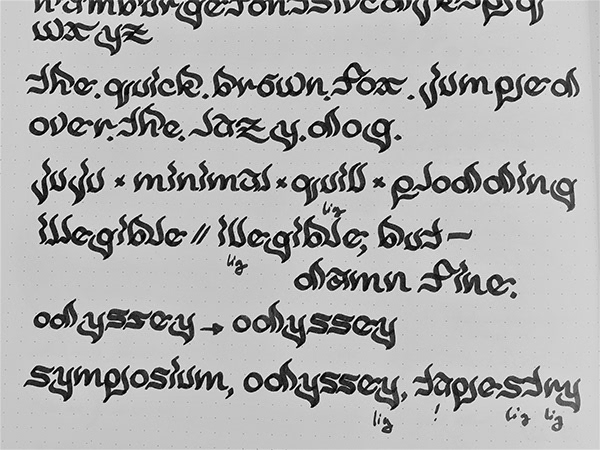 wxyz
the.quick.brown.fox.jumped
over.the.lazy.dog.
juju × minimal × quill × plodding
lig
illegible // illegible, but —
lig
damn fine.
odyssey → odyssey
symposium, odyssey, tapestry
lig ! lig lig